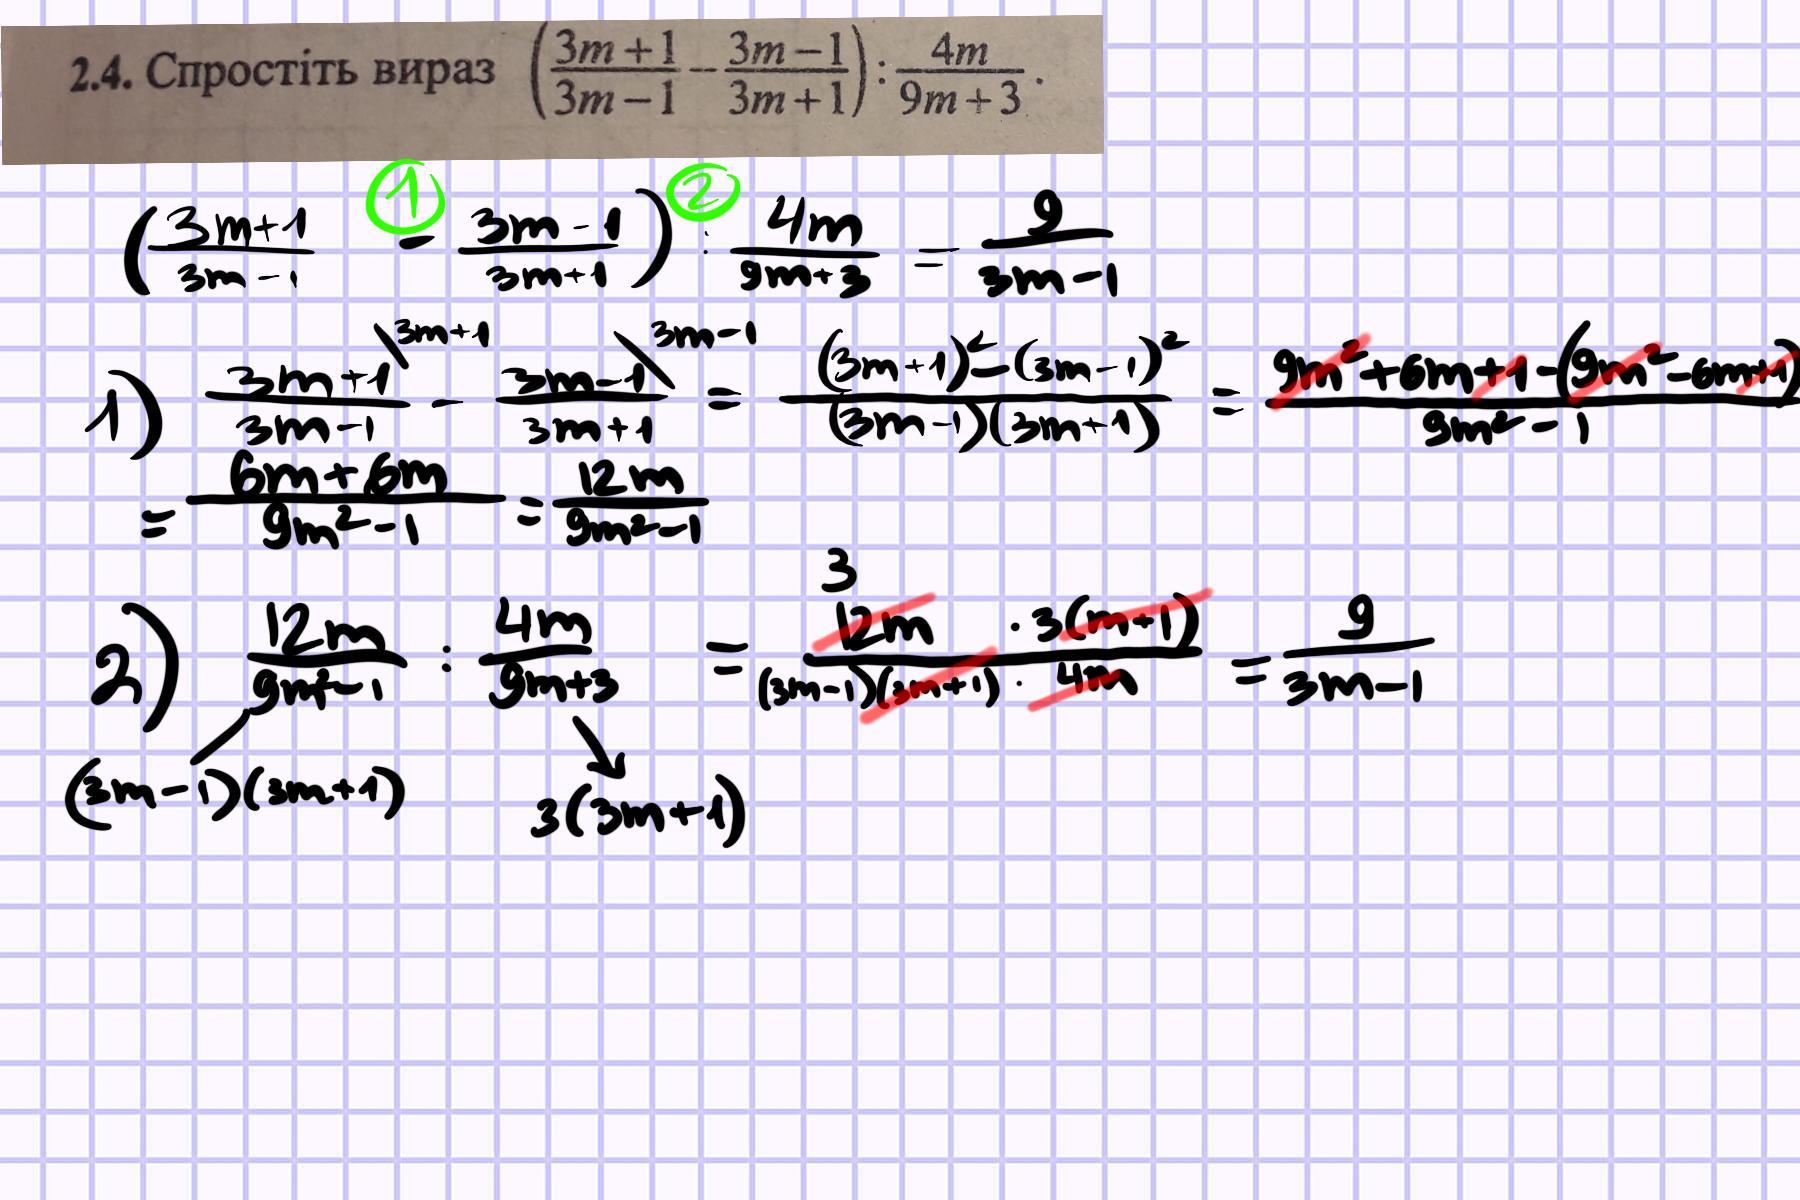 2.4. Спростіть вираз (3m+1/3m−1 − 3m−1/3m+1) : 4m/9m+3.
① ②
(3m+1/3m−1 − 3m−1/3m+1) : 4m/9m+3 = 9/3m−1
1) 3m+1/3m−1 \3m+1 − 3m−1/3m+1 \3m−1 = (3m+1)²−(3m−1)²/(3m−1)(3m+1) = 9m²+6m+1−(9m²−6m+1)/9m²−1
= 6m+6m/9m²−1 = 12m/9m²−1
3
2) 12m/9m²−1 : 4m/9m+3 = 12m · 3(m+1)/(3m−1)(3m+1) · 4m = 9/3m−1
(3m−1)(3m+1) 3(3m+1)